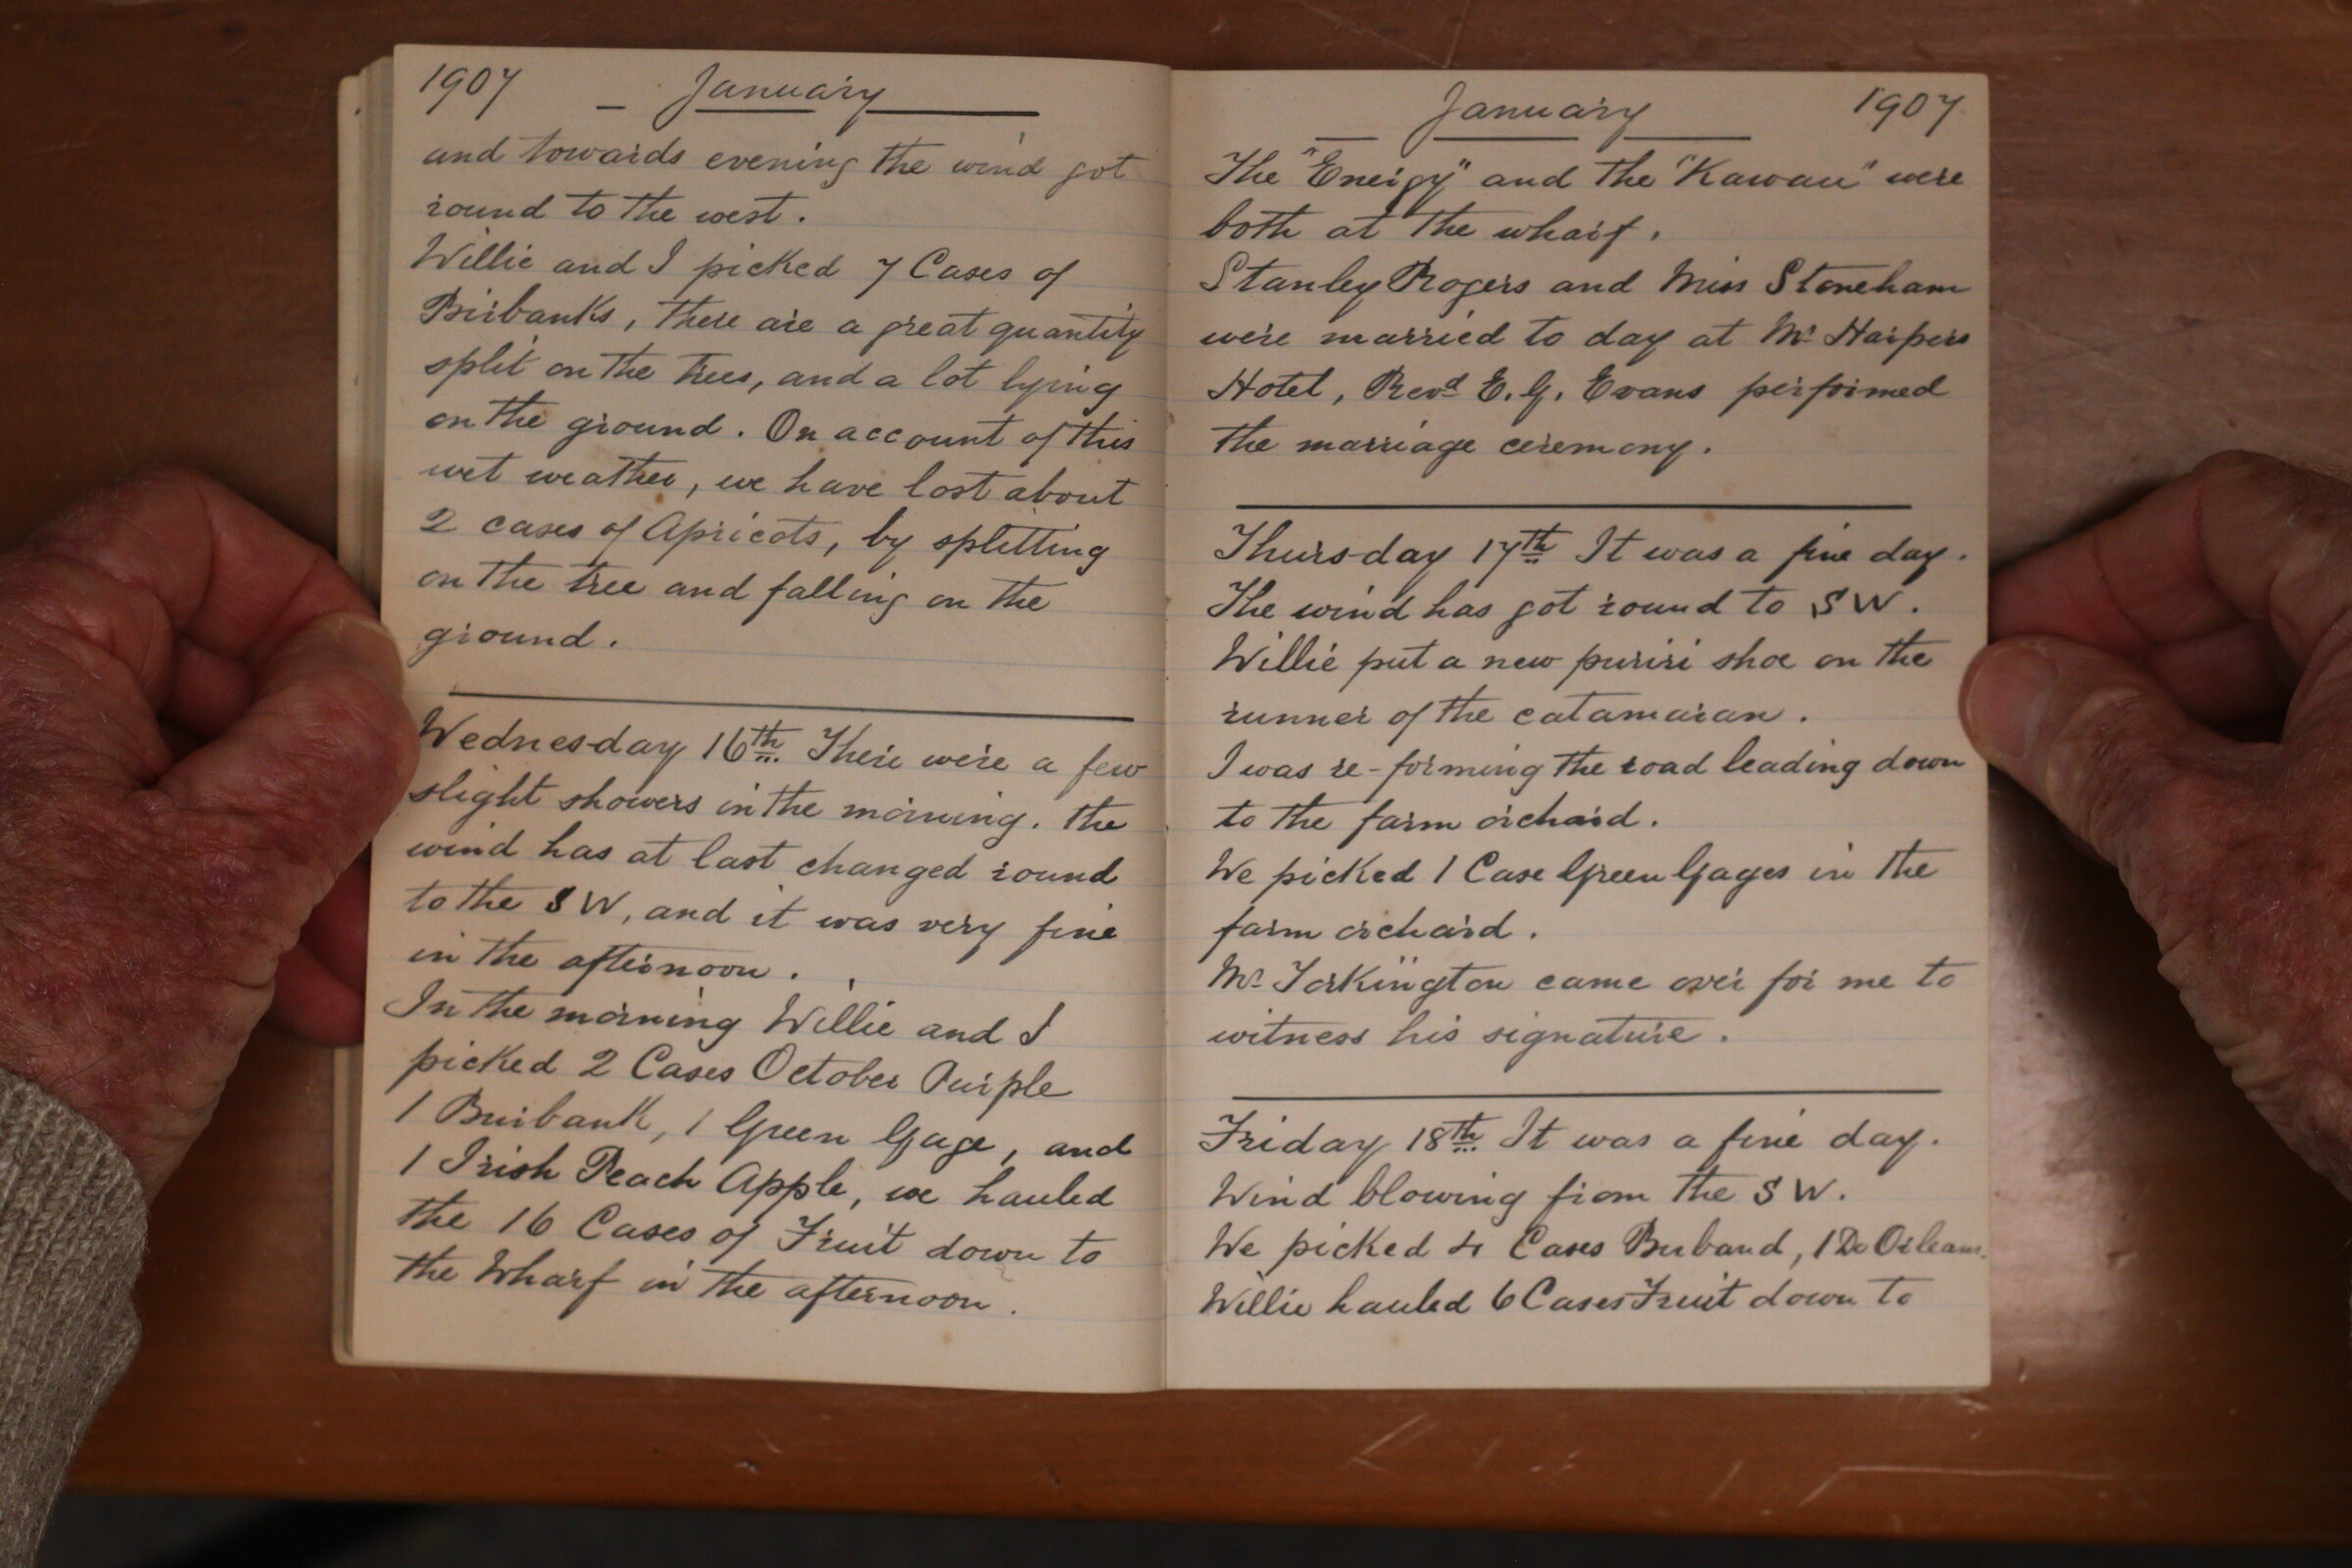 1907 – January
and towards evening the wind got
round to the west.
Willie and I picked 7 Cases of
Burbanks, there are a great quantity
split on the trees, and a lot lying
on the ground. On account of this
wet weather, we have lost about
2 cases of Apricots, by splitting
on the tree and falling on the
ground.
Wednesday 16th. There were a few
slight showers in the morning. The
wind has at last changed round
to the SW, and it was very fine
in the afternoon.
In the morning Willie and I
picked 2 Cases October Purple
1 Burbank, 1 Green Gage, and
1 Irish Peach Apple, we hauled
the 16 Cases of Fruit down to
the Wharf in the afternoon.
January 1907
The "Energy" and the "Kawau" were
both at the wharf.
Stanley Rogers and Miss Stoneham
were married to day at Mr Harpers
Hotel, Revd E. G. Evans performed
the marriage ceremony.
Thursday 17th It was a fine day.
The wind has got round to SW.
Willie put a new puriri shoe on the
runner of the catamaran.
I was re-forming the road leading down
to the farm orchard.
We picked 1 Case Green Gages in the
farm orchard.
Mr Torkington came over for me to
witness his signature.
Friday 18th. It was a fine day.
Wind blowing from the SW.
We picked 4 Cases Burband, 1 Do Orleans.
Willie hauled 6 Cases Fruit down to